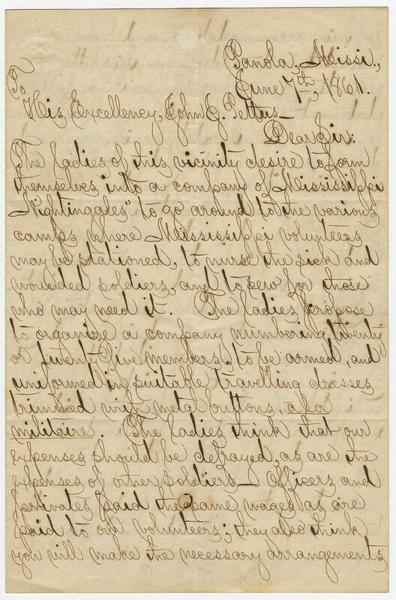 Panola, Missi.,
June 7th, 1861.
To
His Excellency, John J. Pettus—
Dear Sir:
The ladies of this vicinity desire to form
themselves into a company of "Mississippi
Nightingales" to go around to the various
camps where Mississippi volunteers
may be stationed, to nurse the sick and
wounded soldiers, and to sew for those
who may need it. The ladies propose
to organize a company numbering twenty
or twenty five members, to be armed, and
uniformed in suitable travelling dresses
trimmed with metal buttons, a la
militaire. The ladies think that our
expenses should be defrayed, as are the
expenses of other soldiers— Officers and
privates paid the same wages as are
paid to our volunteers; they also think
you will make the necessary arrangements